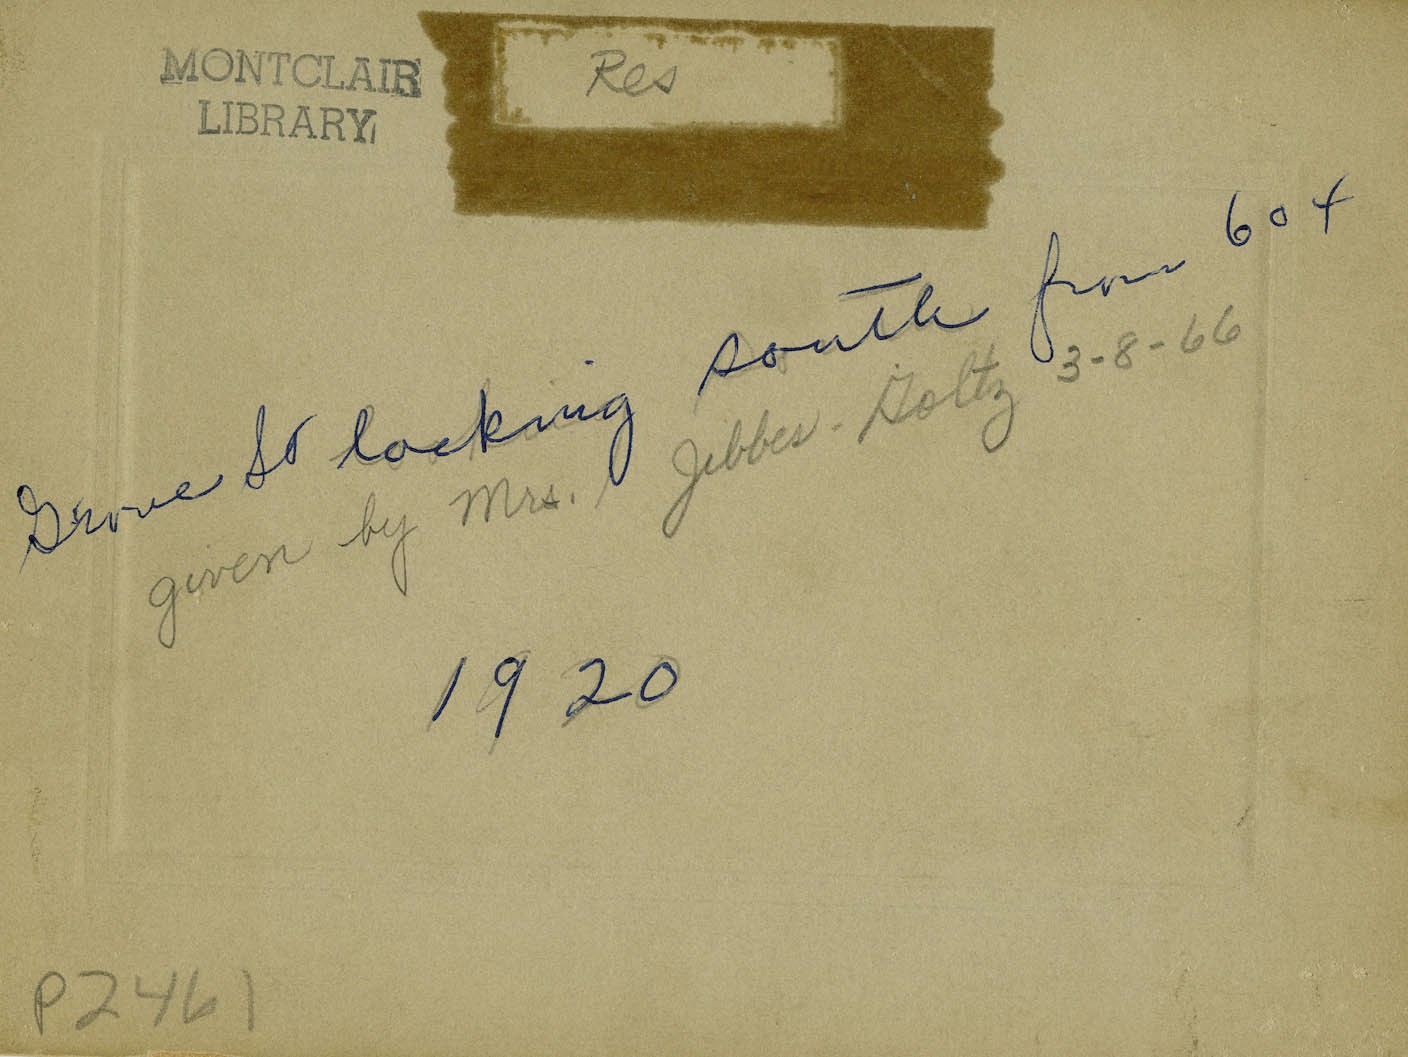 MONTCLAIR
LIBRARY
Res
Grove St looking south from 604
given by Mrs. Jibbes-Goltz 3-8-66
1920
P2461